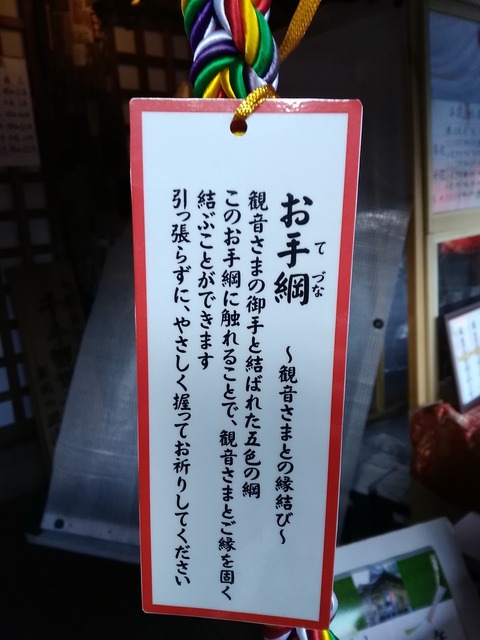 お手綱 ~観音さまとの縁結び~
てづな
観音さまの御手と結ばれた五色の綱
このお手綱に触れることで、観音さまとご縁を固く
結ぶことができます
引っ張らずに、やさしく握ってお祈りしてください